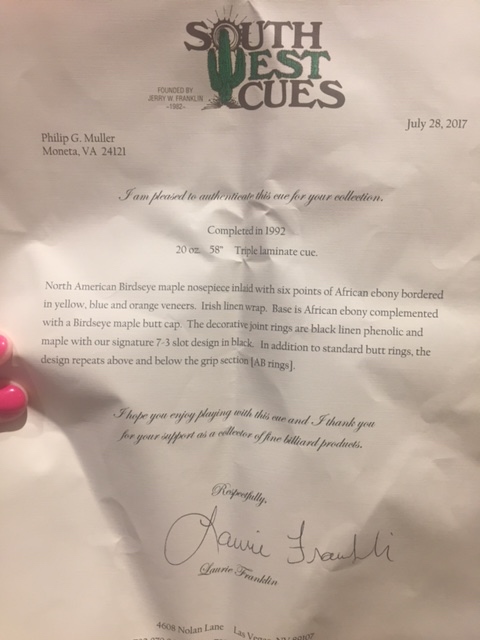 SOUTH
WEST
CUES
FOUNDED BY
JERRY W. FRANKLIN
~1982~
July 28, 2017
Philip G. Muller
Moneta, VA 24121
I am pleased to authenticate this cue for your collection.
Completed in 1992
20 oz. 58" Triple laminate cue.
North American Birdseye maple nosepiece inlaid with six points of African ebony bordered
in yellow, blue and orange veneers. Irish linen wrap. Base is African ebony complemented
with a Birdseye maple butt cap. The decorative joint rings are black linen phenolic and
maple with our signature 7-3 slot design in black. In addition to standard butt rings, the
design repeats above and below the grip section [AB rings].
I hope you enjoy playing with this cue and I thank you
for your support as a collector of fine billiard products.
Respectfully,
Laurie Franklin
Laurie Franklin
4608 Nolan Lane Las